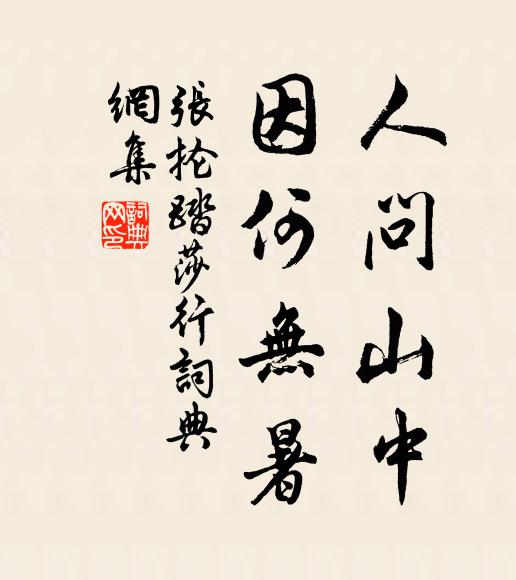 人問山中
因何無暑
張掄踏莎行詞典
網集
詞典
网印